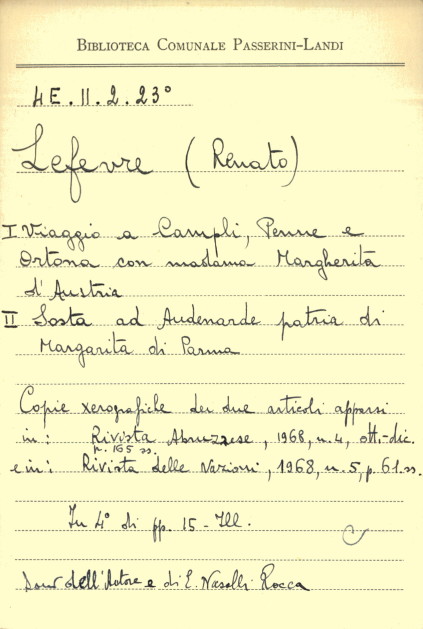 BIBLIOTECA COMUNALE PASSERINI-LANDI
4E.II.2.23°
Lefevre (Renato)
I Viaggio a Campli, Penne e
Ortona con madama Margherita
d'Austria
II Sosta ad Audenarde patria di
Margarita di Parma
Copie xerografiche dei due articoli apparsi
in: Rivista Abruzzese, 1968, n.4, ott.-dic.
n. 165 ss.
e in: Rivista delle Nazioni, 1968, n.5, p.61.ss.
In 4° di pp. 15 - Ill.
Dono dell'Autore e di E. Nasalli Rocca